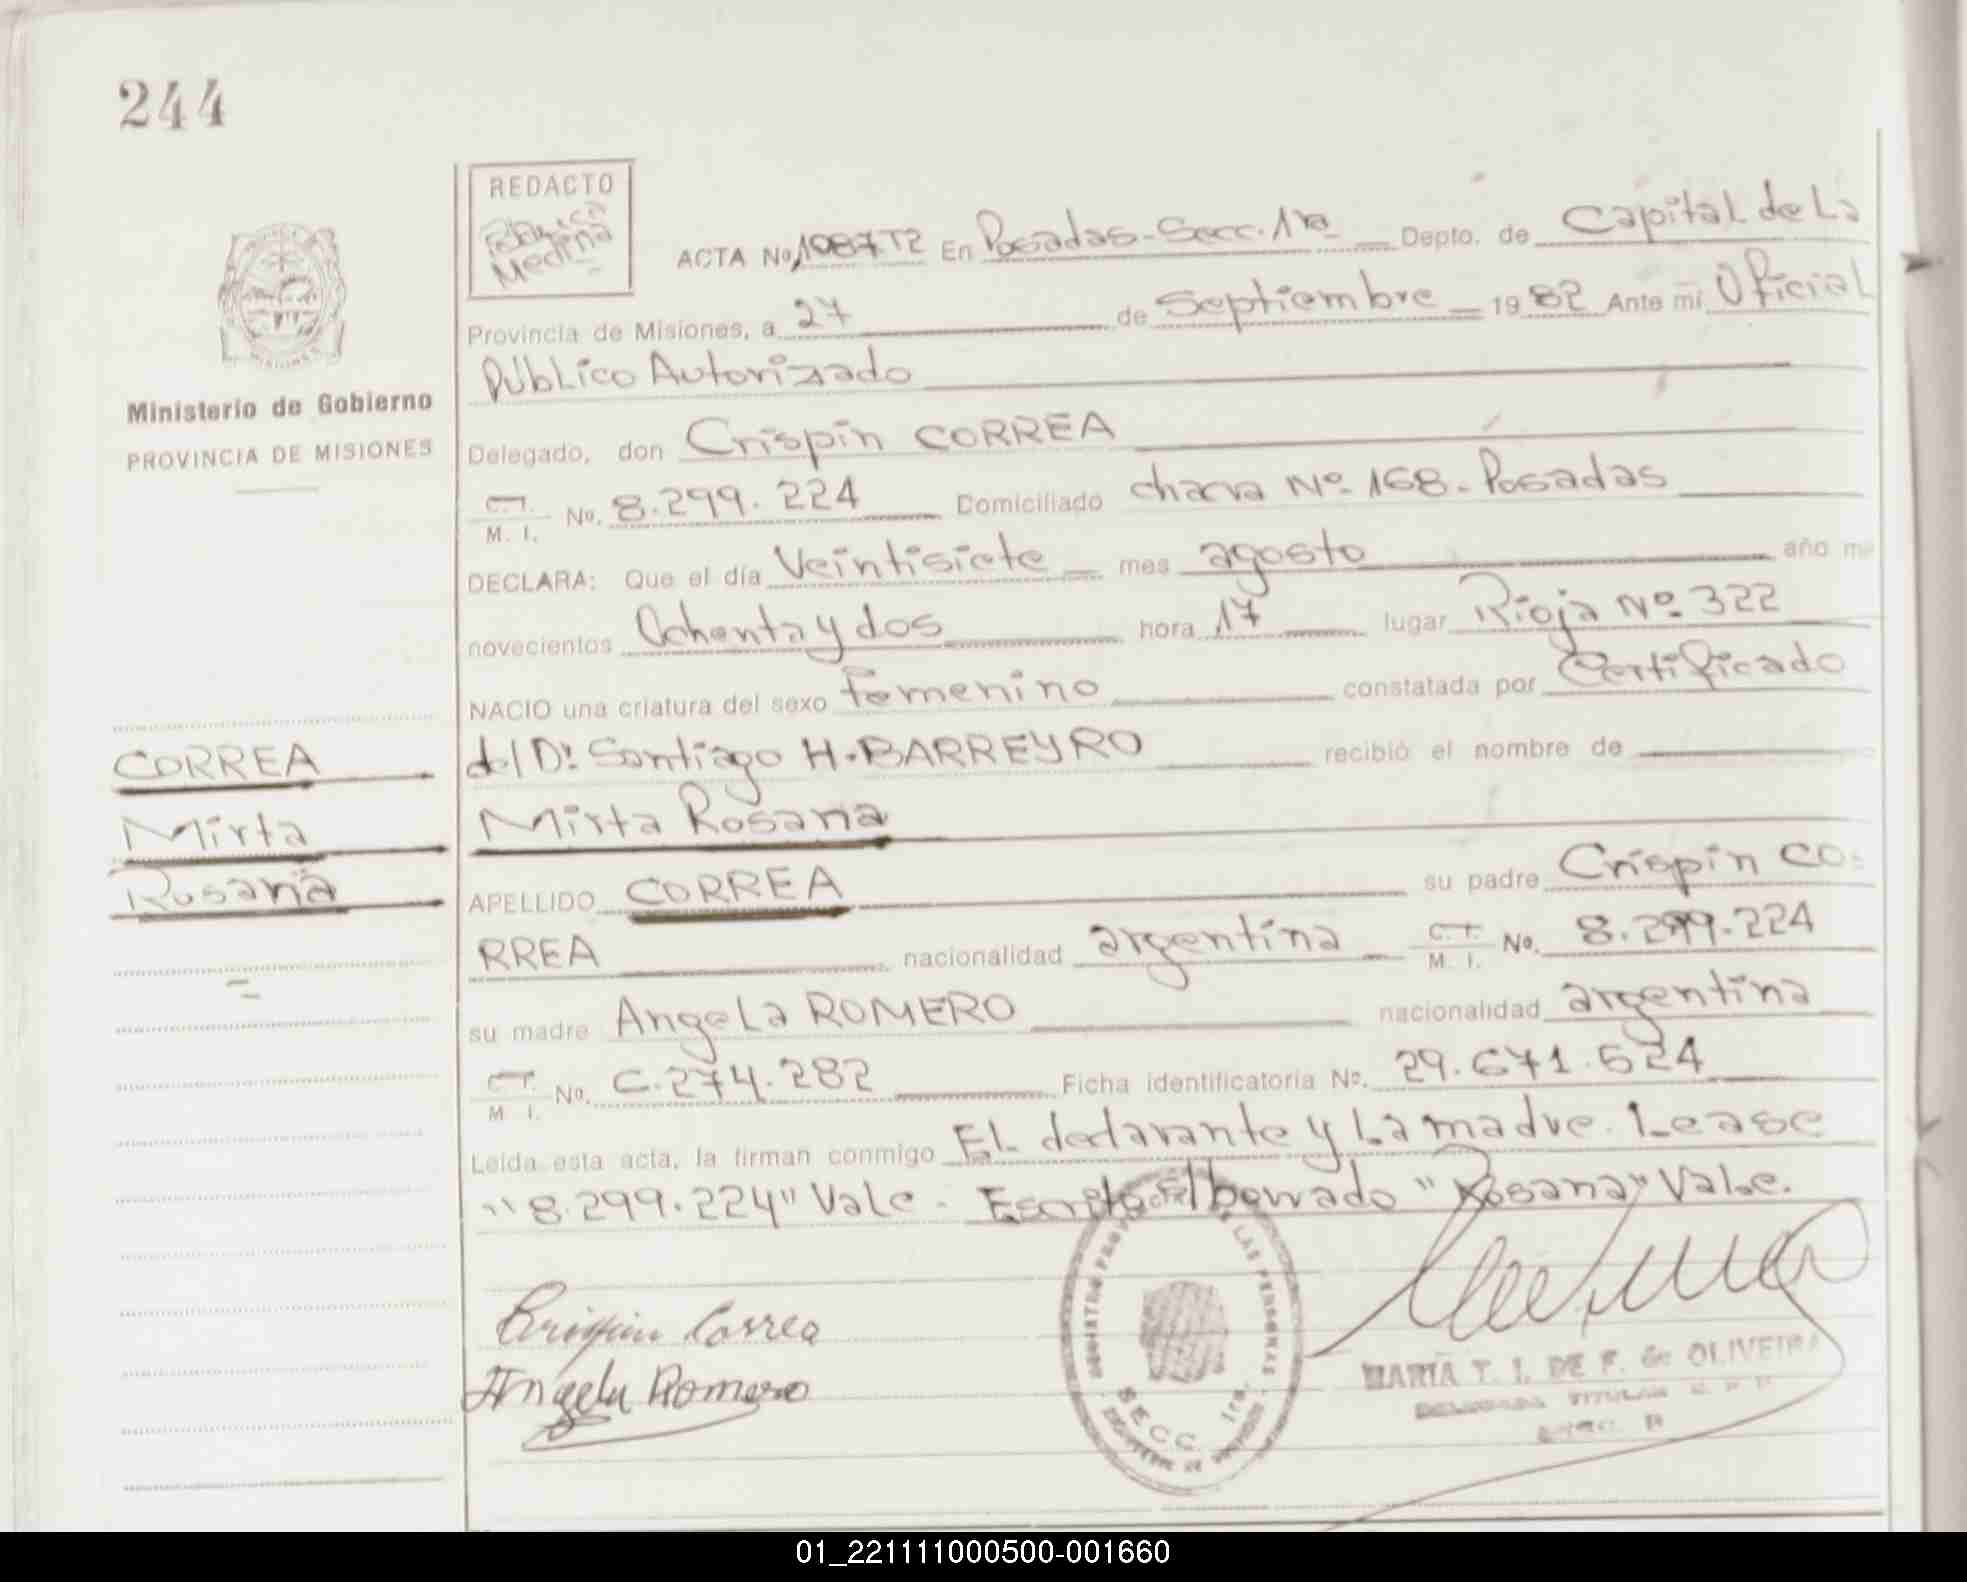 244
REDACTO
Medina
ACTA No 1087 T2 En Posadas - Secc. 1ra Depto. de Capital de La
Provincia de Misiones, a 27 de Septiembre 1982 Ante mí Oficial
Público Autorizado
Ministerio de Gobierno
PROVINCIA DE MISIONES
Delegado, don Crispín CORREA
C.I. M. I. No. 8.299.224 Domiciliado chacra Nº 168 - Posadas
DECLARA: Que el día Veintisiete mes agosto año mi
novecientos Ochenta y dos hora 17 lugar Rioja Nº 322
NACIO una criatura del sexo femenino constatada por Certificado
del Dr. Santiago H. BARREYRO recibió el nombre de
Mirta Rosana
CORREA
Mirta
Rosana
APELLIDO CORREA su padre Crispín CO-
RREA nacionalidad argentina C. I. M. I. No. 8.299.224
su madre Angela ROMERO nacionalidad argentina
C.I. M I. No. C.274.282 Ficha identificatoria No. 29.671.524
Leída esta acta, la firman conmigo El declarante y La madre. Lease
"8.299.224" Vale - Escrito borrado "Rosana" Vale.
Crispin Correa
Angela Romero
LAS PERSONAS
SECC. 1ra.
MARIA T. I. DE F. de OLIVEIRA
01_221111000500-001660